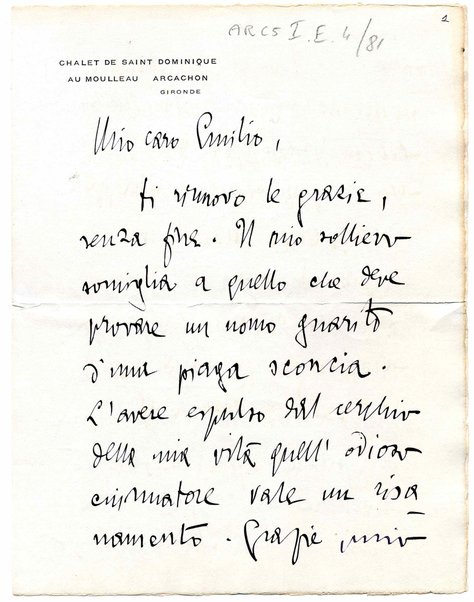 1
ARCS I. E. 4/81
CHALET DE SAINT DOMINIQUE
AU MOULLEAU ARCACHON
GIRONDE
Mio caro Emilio,
ti rinnovo le grazie,
senza fine. Il mio sollievo
somiglia a quello che deve
provare un uomo guarito
d'una piaga sconcia.
L'avere espulso dal cerchio
della mia vita quell' odioso
ciurmatore vale un risa
namento. Grazie